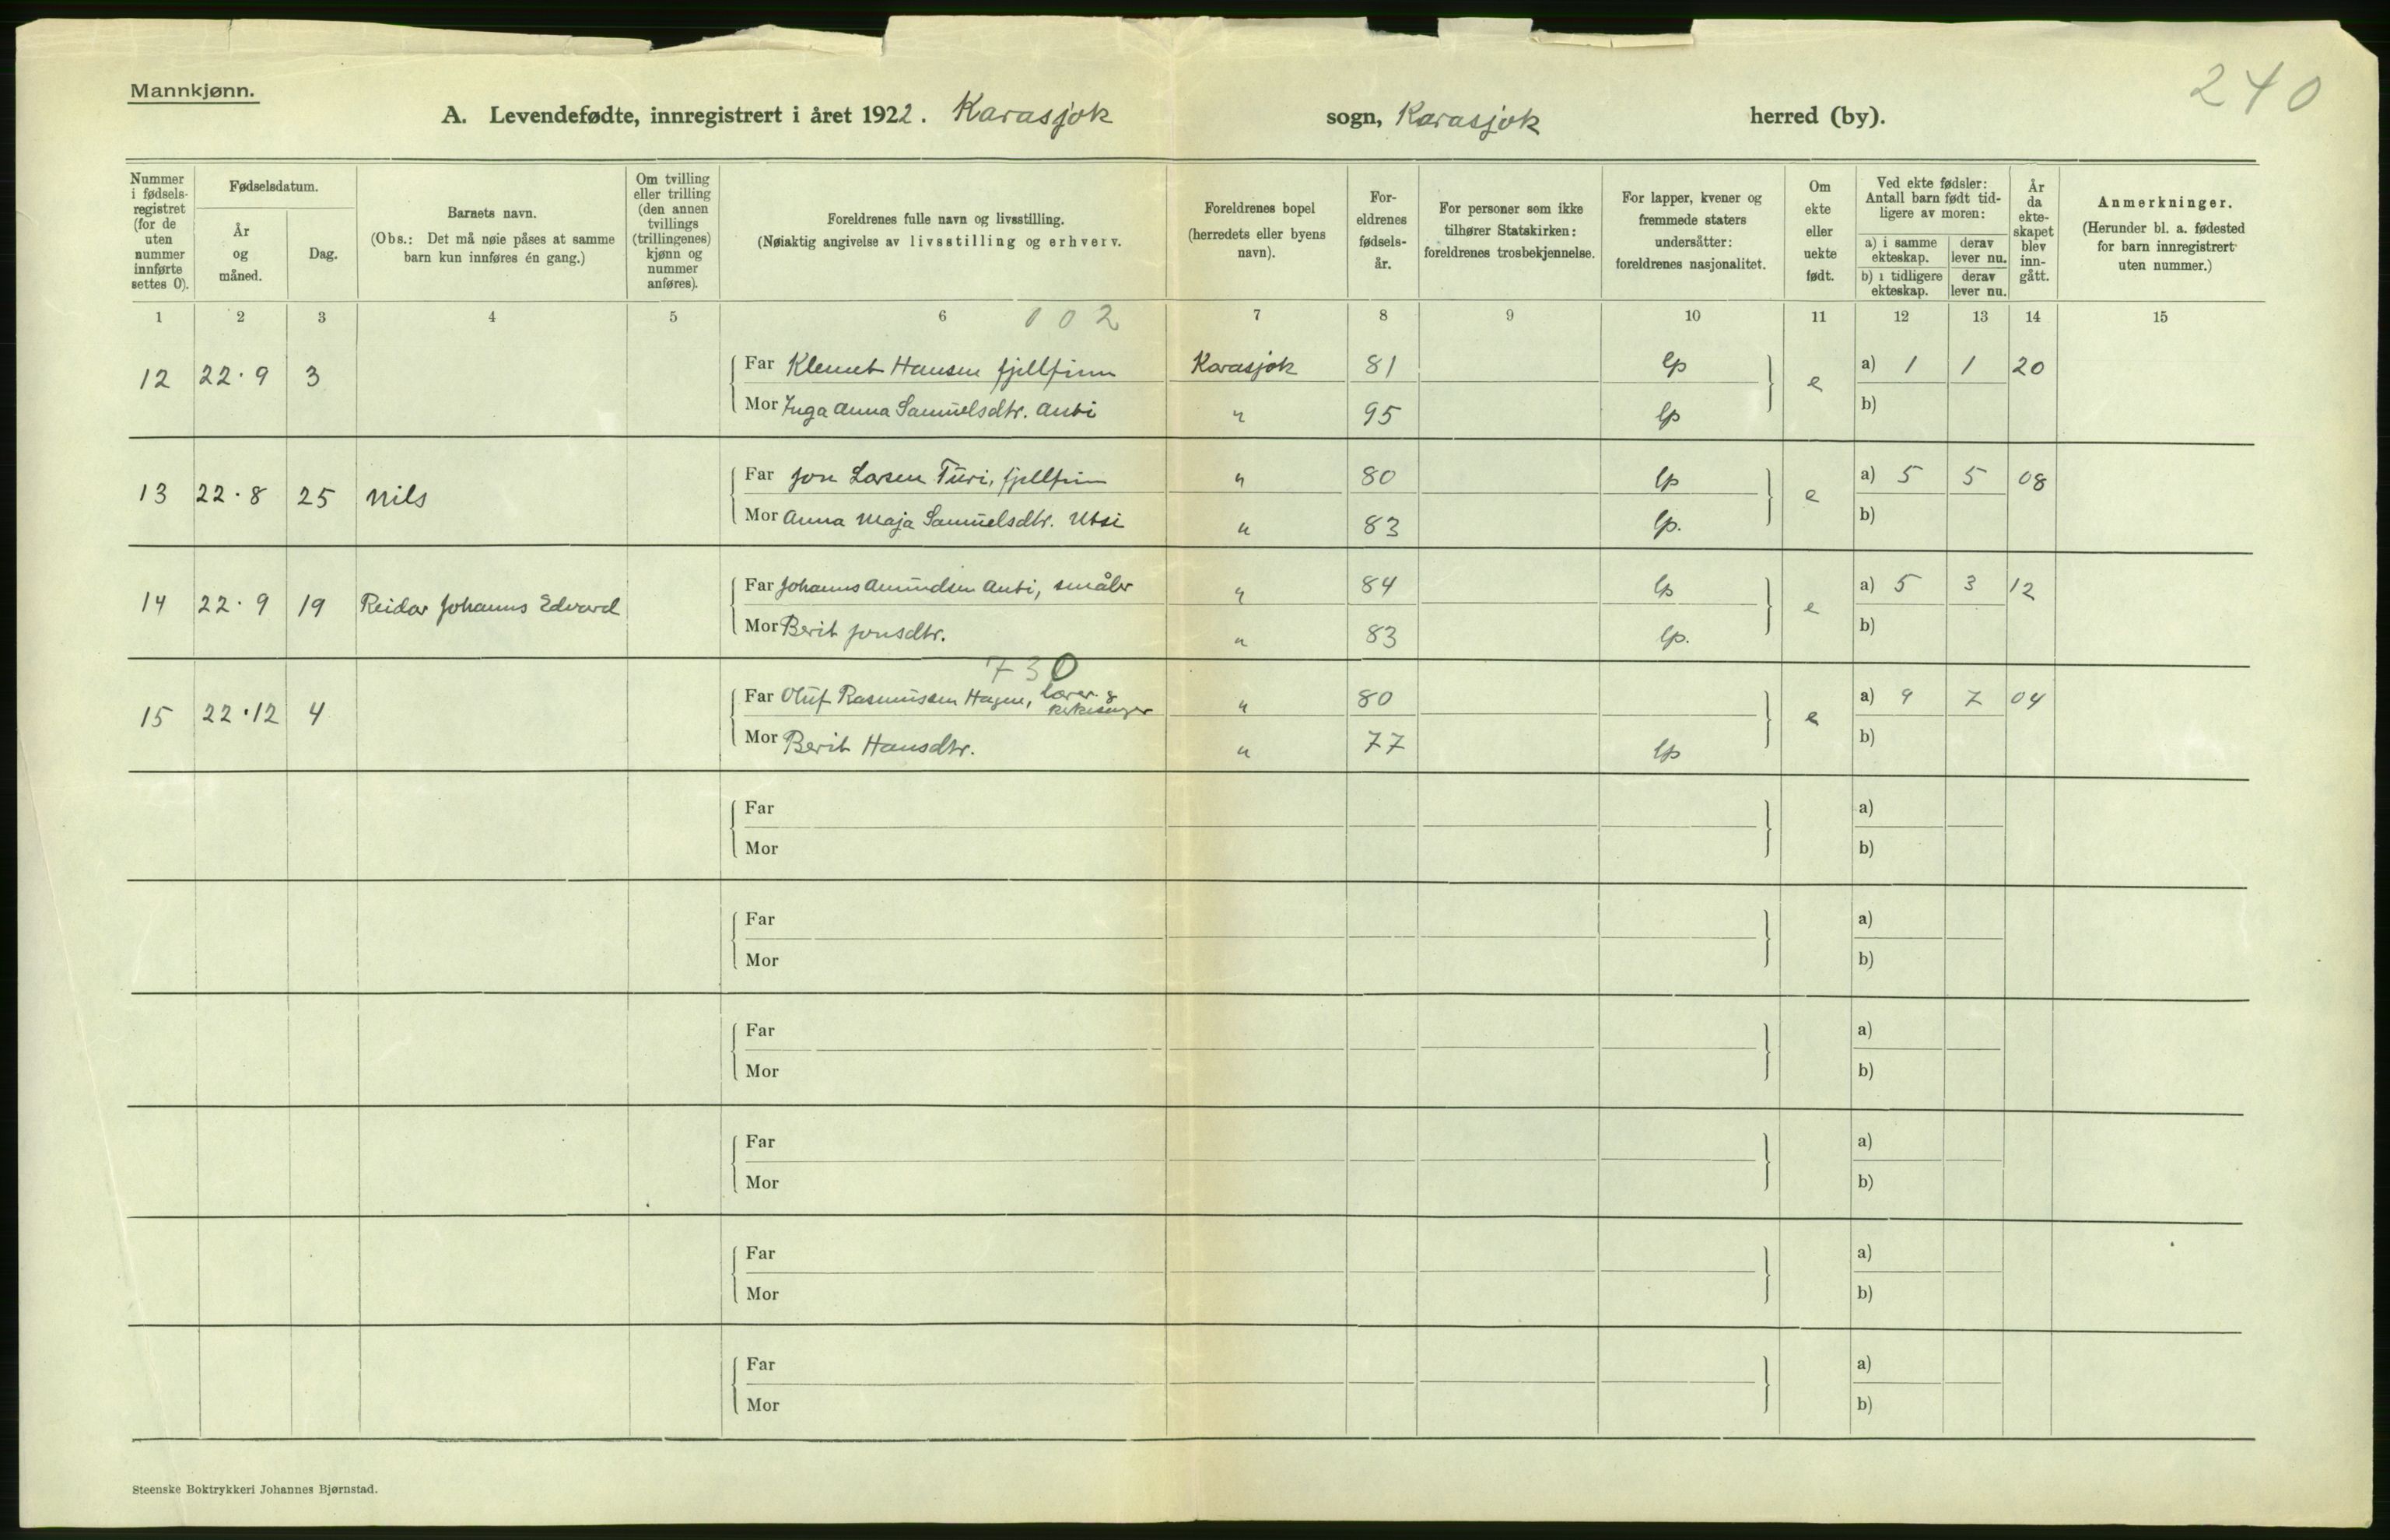 240
Mannkjønn.
A. Levendefødte, innregistrert i året 1922. Karasjok sogn, Karasjok herred (by).
Nummer i fødsels-registret (for de uten nummer innførte settes 0).
Fødselsdatum.
År og måned.
Dag.
Barnets navn.
(Obs.: Det må nøie påses at samme barn kun innføres én gang.)
Om tvilling eller trilling (den annen tvillings (trillingenes) kjønn og nummer anføres).
Foreldrenes fulle navn og livsstilling.
(Nøiaktig angivelse av livsstilling og erhverv.
Foreldrenes bopel (herredets eller byens navn).
For-eldrenes fødsels-år.
For personer som ikke tilhører Statskirken: foreldrenes trosbekjennelse.
For lapper, kvener og fremmede staters undersåtter: foreldrenes nasjonalitet.
Om ekte eller uekte født.
Ved ekte fødsler: Antall barn født tid-ligere av moren:
a) i samme ekteskap. derav lever nu.
b) i tidligere ekteskap. derav lever nu.
År da ekte-skapet blev inn-gått.
Anmerkninger.
(Herunder bl. a. fødested for barn innregistrert uten nummer.)
1 2 3 4 5 6 002 7 8 9 10 11 12 13 14 15
12 22·9 3 Far Klemet Hansen fjellfinn Karasjok 81 lp e a) 1 1 20
Mor Inga Anna Samuelsdtr. Anti " 95 lp b)
13 22·8 25 Nils Far Jon Larsen Turi, fjellfinn " 80 lp e a) 5 5 08
Mor Anna Maja Samuelsdtr. Utsi " 83 lp. b)
14 22·9 19 Reidar Johannes Edvard Far Johannes Amundsen Anti, småbr " 84 lp e a) 5 3 12
Mor Berit Jonsdtr. " 83 lp. b)
730
15 22·12 4 Far Oluf Rasmussen Hagen, lærer & kirkesanger " 80 e a) 9 7 04
Mor Berit Hansdtr. " 77 lp b)
Far a)
Mor b)
Far a)
Mor b)
Far a)
Mor b)
Far a)
Mor b)
Far a)
Mor b)
Far a)
Mor b)
Steenske Boktrykkeri Johannes Bjørnstad.